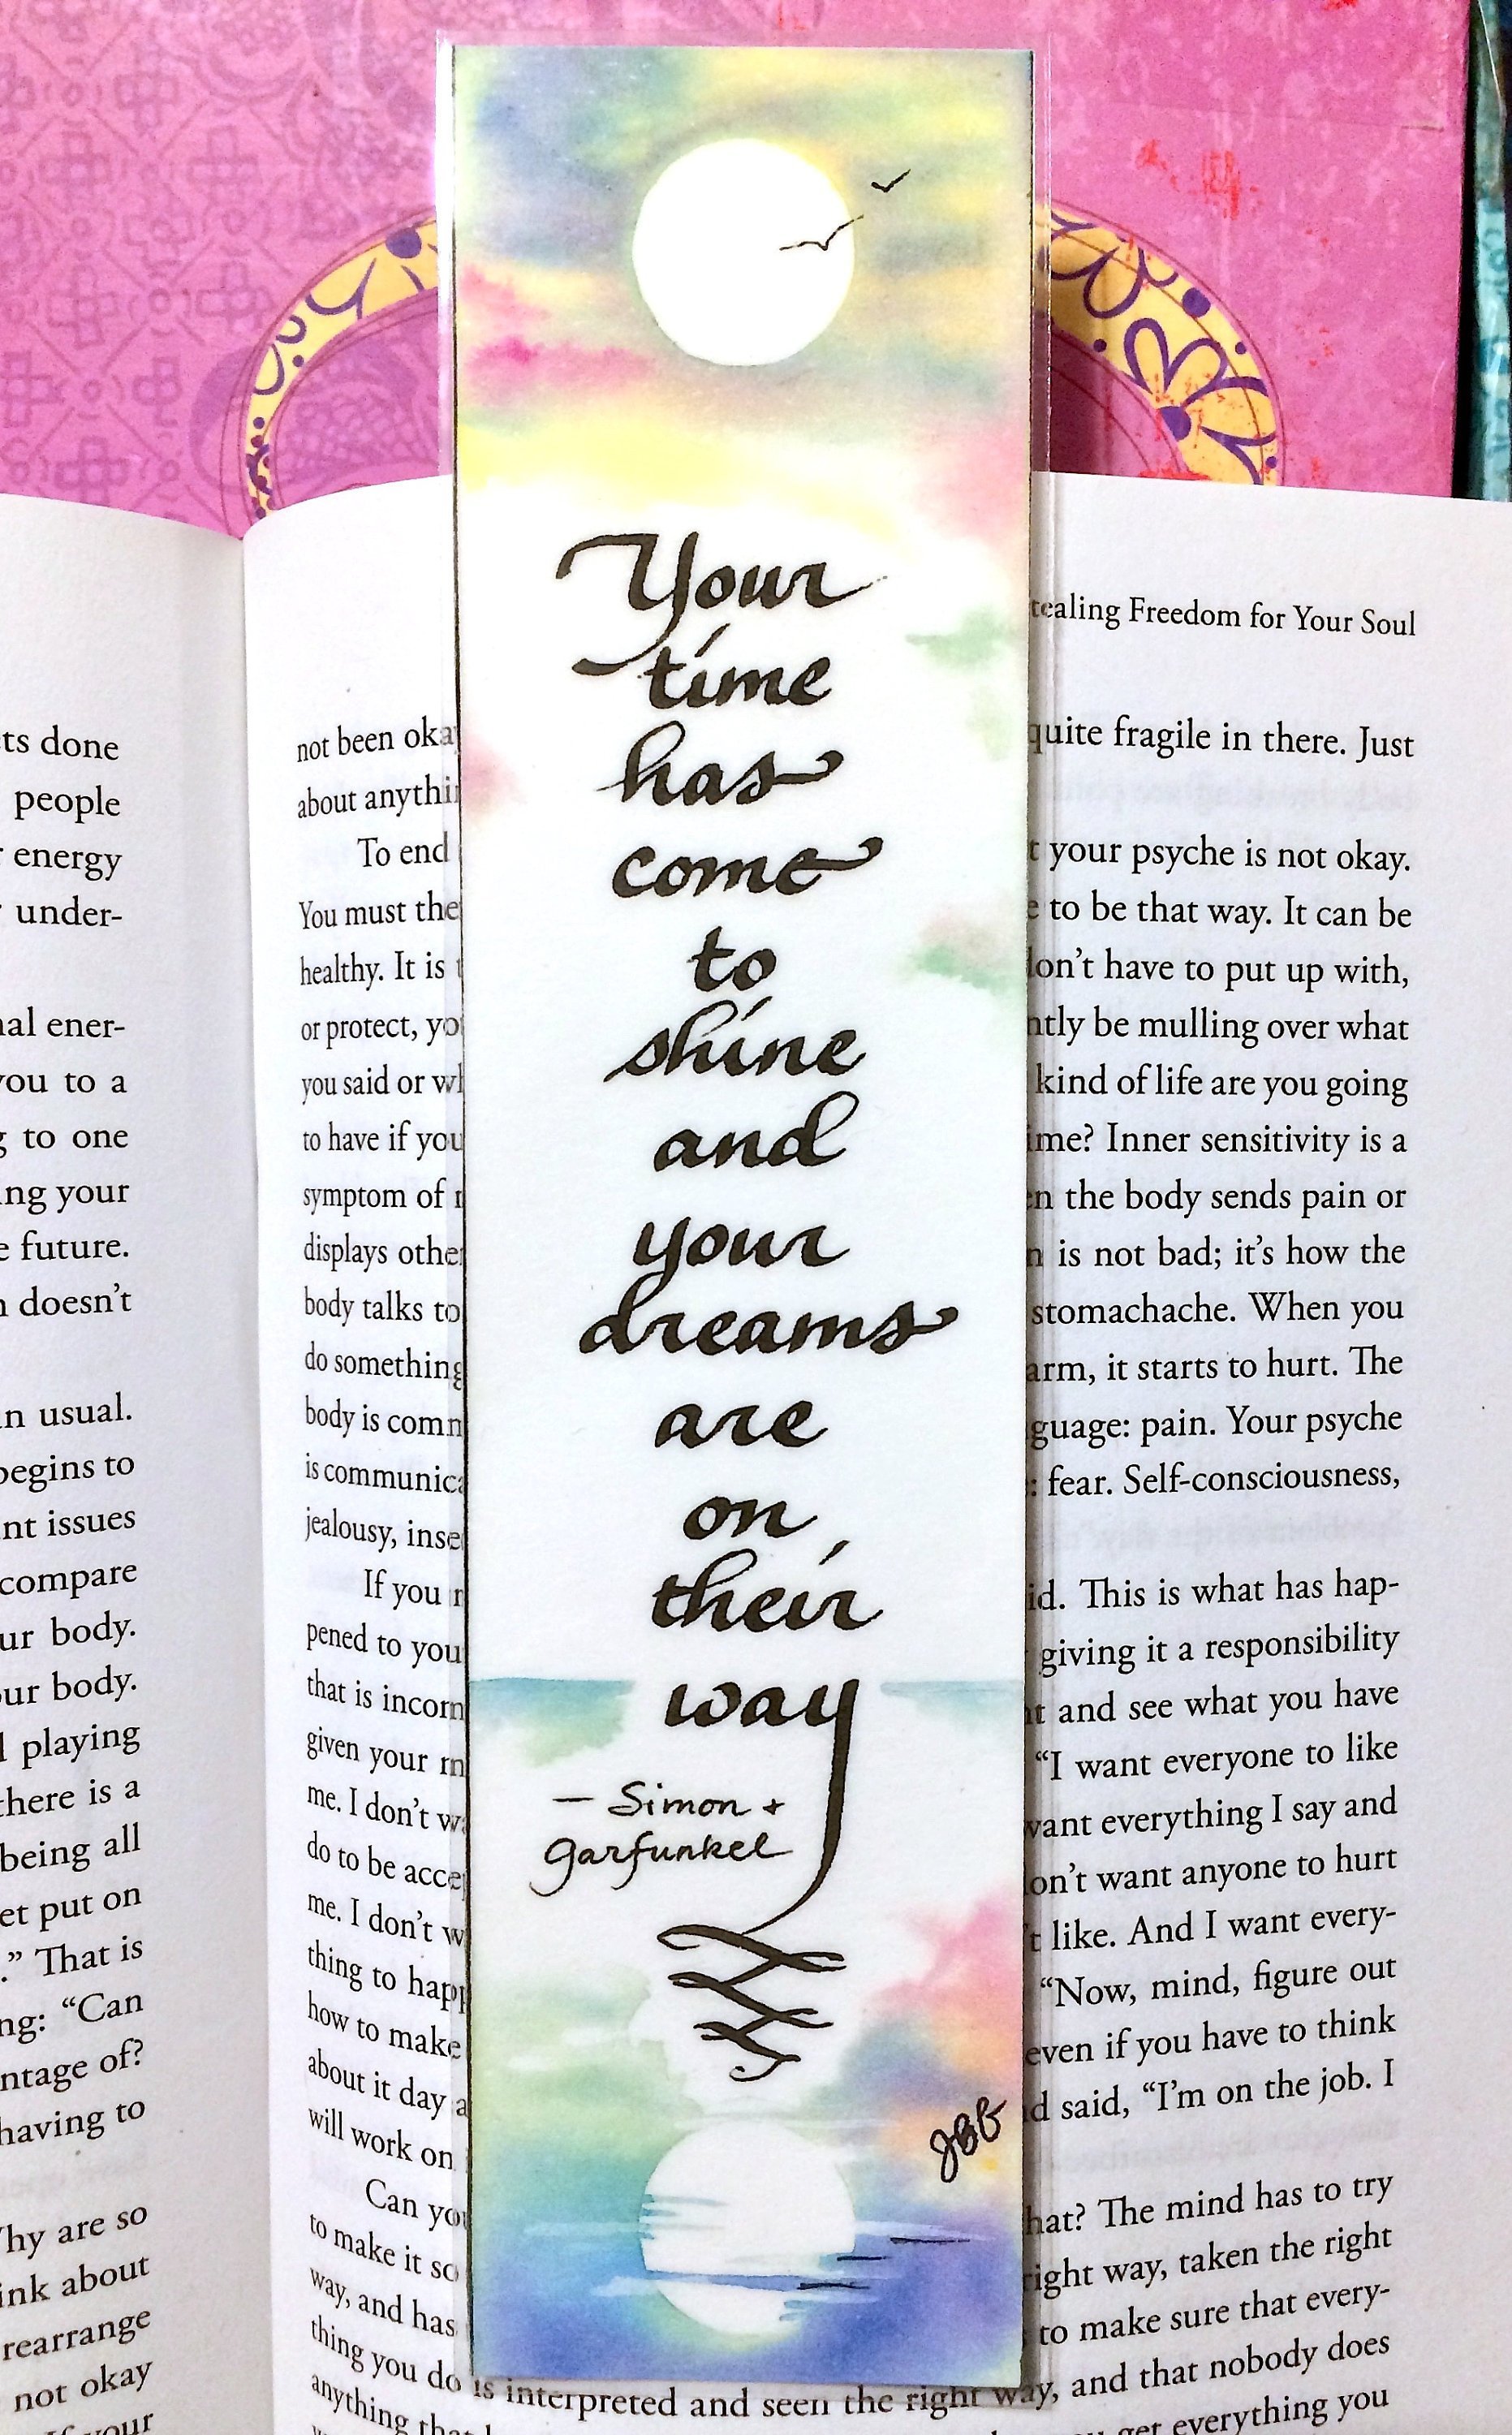 Your
time
has
come
to
shine
and
your
dreams
are
on
their
way
— Simon +
Garfunkel
JBB
ts done
people
energy
under-
ener-
you to a
to one
your
future.
doesn't
usual.
begins to
issues
compare
body.
body.
playing
there is a
being all
put on
." That is
"Can
of?
having to
are so
about
rearrange
not okay
your
not been
about
To end
You must
healthy. It is
or protect,
you said or
to have if you
symptom of
displays
body talks to
do something
body is
is
jealousy,
If you
to you
that is
given your
me. I don't
do to be
me. I don't
thing to
how to make
about it day
will work on
Can
to make it
way, and has
thing you do is interpreted and seen the right way, and that nobody does
anything get everything you
Freedom for Your Soul
quite fragile in there. Just
your psyche is not okay.
to be that way. It can be
have to put up with,
be mulling over what
kind of life are you going
Inner sensitivity is a
the body sends pain or
is not bad; it's how the
stomachache. When you
arm, it starts to hurt. The
pain. Your psyche
fear. Self-consciousness,
This is what has hap-
giving it a responsibility
and see what you have
"I want everyone to like
want everything I say and
want anyone to hurt
like. And I want every-
"Now, mind, figure out
even if you have to think
said, "I'm on the job. I
The mind has to try
right way, taken the right
to make sure that every-